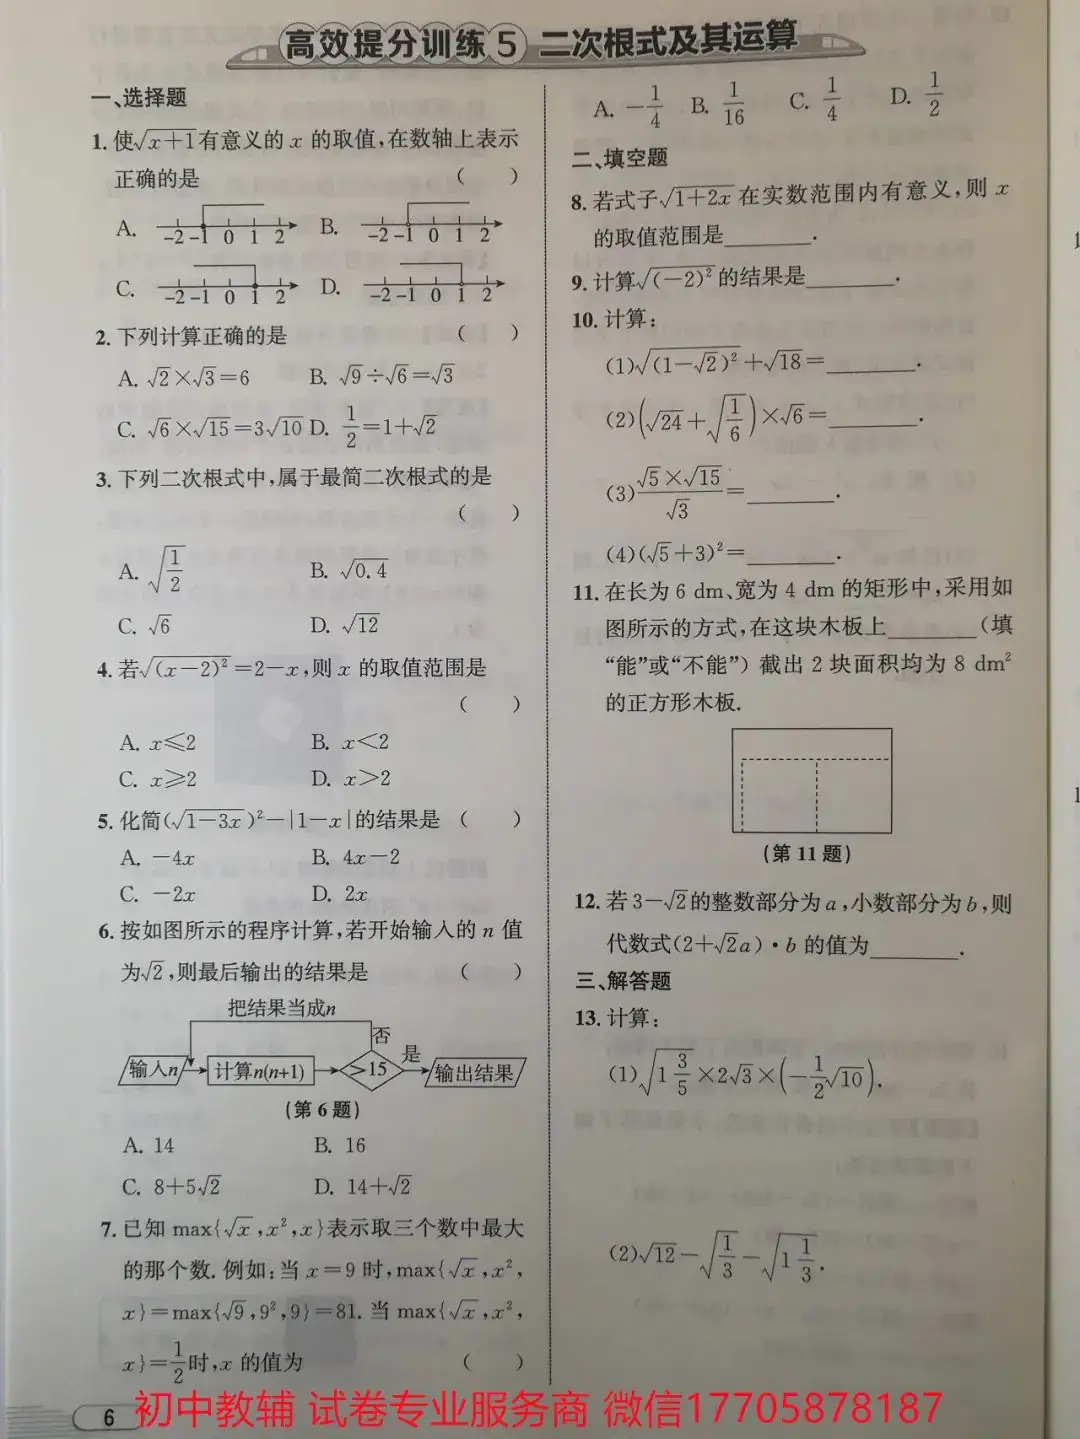 高效提分训练5 二次根式及其运算
一、选择题
1. 使√(x+1)有意义的 x 的取值,在数轴上表示
正确的是 (  )
A. -2 -1 0 1 2 B. -2 -1 0 1 2
C. -2 -1 0 1 2 D. -2 -1 0 1 2
2. 下列计算正确的是 (  )
A. √2×√3=6 B. √9÷√6=√3
C. √6×√15=3√10 D. 1/2=1+√2
3. 下列二次根式中,属于最简二次根式的是
(  )
A. √(1/2) B. √0.4
C. √6 D. √12
4. 若√((x-2)²)=2-x,则 x 的取值范围是
(  )
A. x≤2 B. x<2
C. x≥2 D. x>2
5. 化简(√(1-3x))²-|1-x|的结果是 (  )
A. -4x B. 4x-2
C. -2x D. 2x
6. 按如图所示的程序计算,若开始输入的 n 值
为√2,则最后输出的结果是 (  )
把结果当成n
否
输入n 计算n(n+1) >15 是 输出结果
(第 6 题)
A. 14 B. 16
C. 8+5√2 D. 14+√2
7. 已知 max{√x,x²,x}表示取三个数中最大
的那个数. 例如:当 x=9 时,max{√x,x²,
x}=max{√9,9²,9}=81. 当 max{√x,x²,
x}=1/2时,x 的值为 (  )
A. -1/4 B. 1/16 C. 1/4 D. 1/2
二、填空题
8. 若式子√(1+2x)在实数范围内有意义,则 x
的取值范围是______.
9. 计算√((-2)²)的结果是______.
10. 计算:
(1)√((1-√2)²)+√18=______.
(2)(√24+√(1/6))×√6=______.
(3)(√5×√15)/√3=______.
(4)(√5+3)²=______.
11. 在长为 6 dm、宽为 4 dm 的矩形中,采用如
图所示的方式,在这块木板上______(填
“能”或“不能”)截出 2 块面积均为 8 dm²
的正方形木板.
(第 11 题)
12. 若 3-√2的整数部分为 a,小数部分为 b,则
代数式(2+√2a)·b 的值为______.
三、解答题
13. 计算:
(1)√(1 3/5)×2√3×(-1/2√10).
(2)√12-√(1/3)-√(1 1/3).
6
初中教辅 试卷专业服务商 微信17705878187